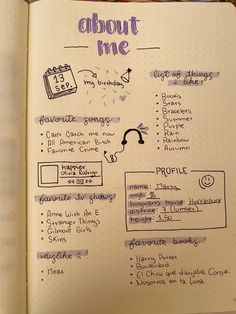 about
me
13
SEP.
my birthday
list of things
i like!
• Books
• Stars
• Bracelets
• Summer
• Purple
• Rain
• Rainbow
• Autumn
favorite songs
• Can't Catch me now
• All American Bitch
• Favorite Crime
happier
Olivia Rodrigo
PROFILE
name:
age: 16
hogwarts house: Hufflepuff
district: 7 (lumber)
height: 1,50
favorite tv shows
• Anne With An E
• Stranger Things
• Gilmore Girls
• Skins
dislike:
favorite books:
• Harry Potter
• Boulevard
• El Chico que dibujaba
• Nosotros en la Luna